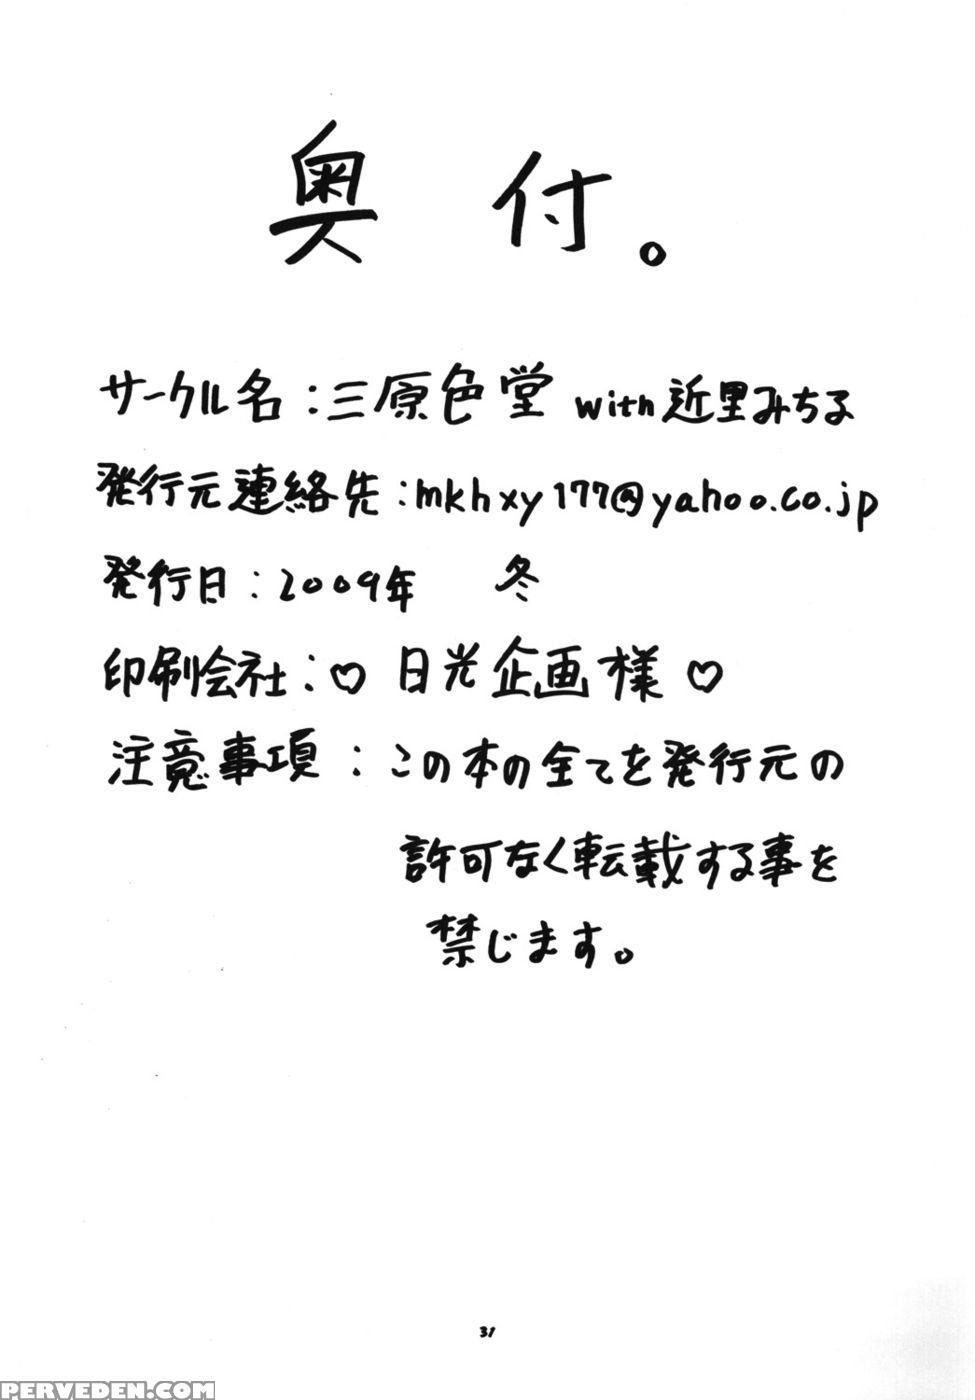 奥付。
サークル名：三原色堂 with 近里みちる
発行元連絡先：mkhxy177@yahoo.co.jp
発行日：2009年 冬
印刷会社：♡ 日光企画様 ♡
注意事項：この本の全てを発行元の
許可なく転載する事を
禁じます。
31
PERVEDEN.COM